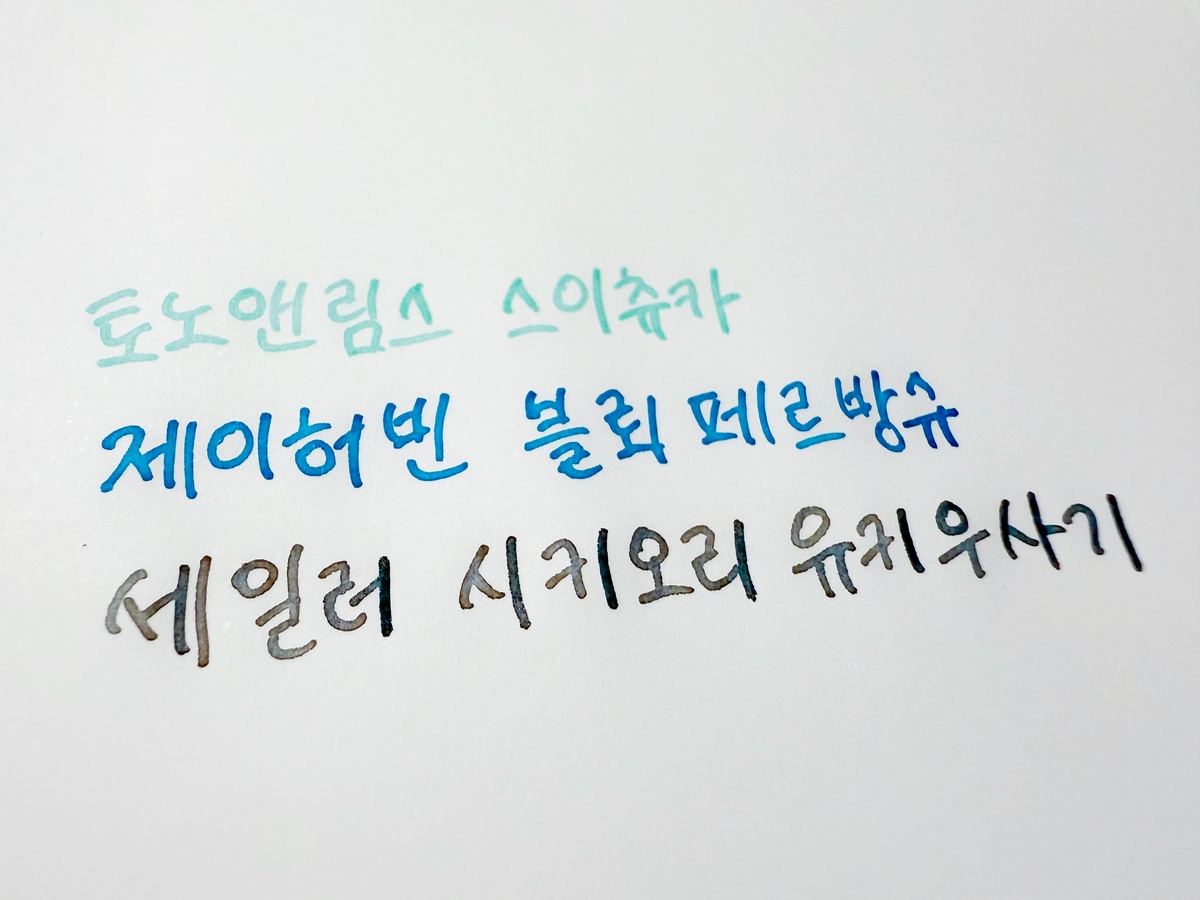 토노앤림스 스이츄카
제이허빈 블뢰 페르방슈
세일러 시키오리 유키우사기